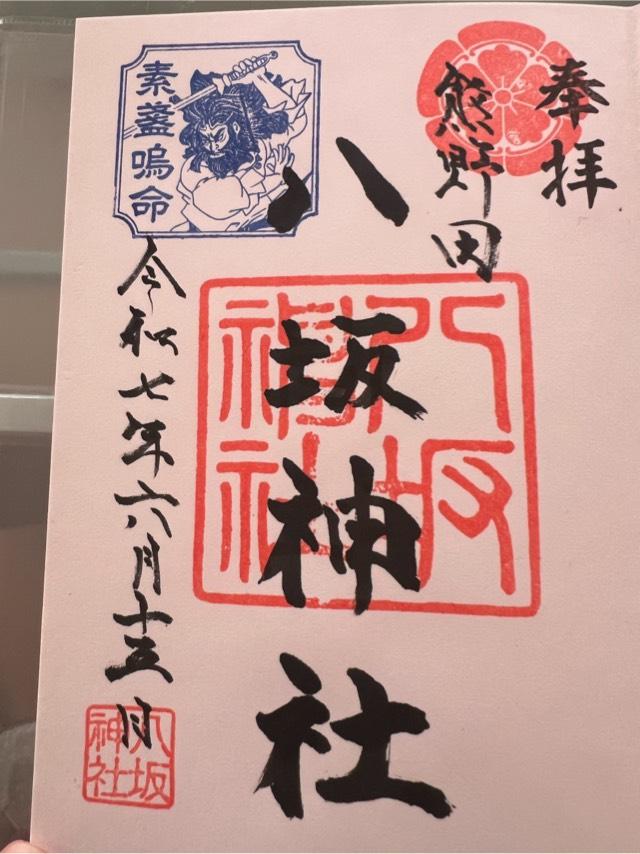 奉拝
熊野田
八坂神社
八坂神社
素盞嗚命
令和七年六月十五日
八坂神社